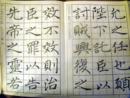 允之任也願
陛下託臣以
討賊興復之
效不效則治
臣之罪以告
先帝之靈若